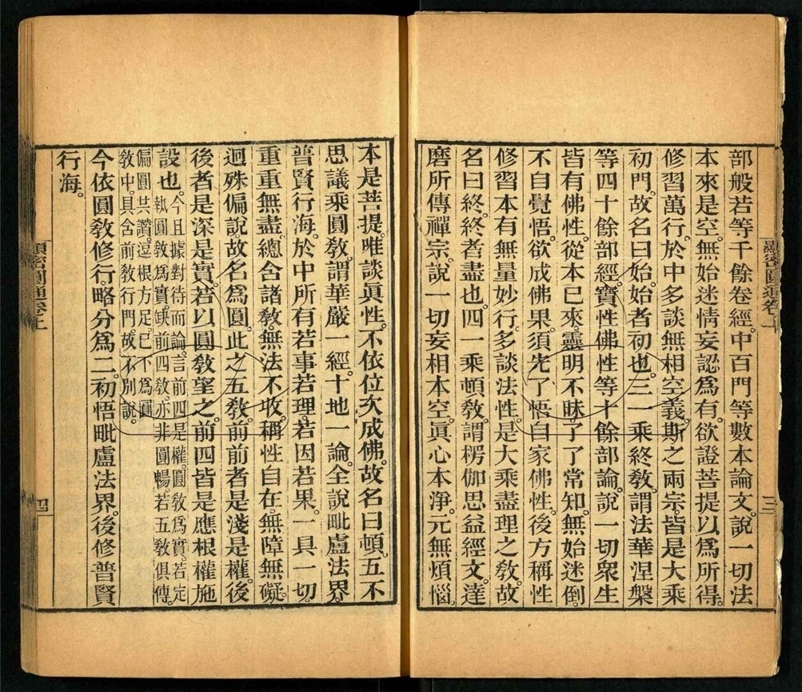 部般若等千餘卷經。中百門等數本論文。說一切法
本來是空。無始迷情妄認爲有。欲證菩提以爲所得。
修習萬行。於中多談無相空義。斯之兩宗。皆是大乘
初門。故名曰始。始者初也。三一乘終教。謂法華涅槃
等四十餘部經。寶性佛性等十餘部論。說一切衆生
皆有佛性。從本已來。靈明不昧。了了常知。無始迷倒。
不自覺悟。欲成佛果。須先了悟自家佛性。後方稱性
修習本有無量妙行。多談法性。是大乘盡理之教。故
名曰終。終者盡也。四一乘頓教。謂楞伽思益經文。達
磨所傳禪宗。說一切妄相本空。眞心本淨。元無煩惱。
顯密圓通卷上
三
本是菩提。唯談眞性。不依位次成佛。故名曰頓。五不
思議乘圓教。謂華嚴一經。十地一論。全說毗盧法界。
普賢行海。於中所有若事若理。若因若果。一具一切。
重重無盡。總含諸教。無法不收。稱性自在。無障無礙。
迥殊偏說。故名爲圓。此之五教。前前者是淺是權。後
後者是深是實。若以圓教望之。前四皆是應根權施
設也。今且據對待而論。言前四是權。圓教爲實。若定
執圓教爲實。缺前四教。亦非圓暢。若五教俱傳。
偏圓共讚。逗根方足。已下爲圓
教中。具含前教行門。故不別說。
今依圓教修行。略分爲二。初悟毗盧法界。後修普賢
行海。
顯密圓通卷上
四